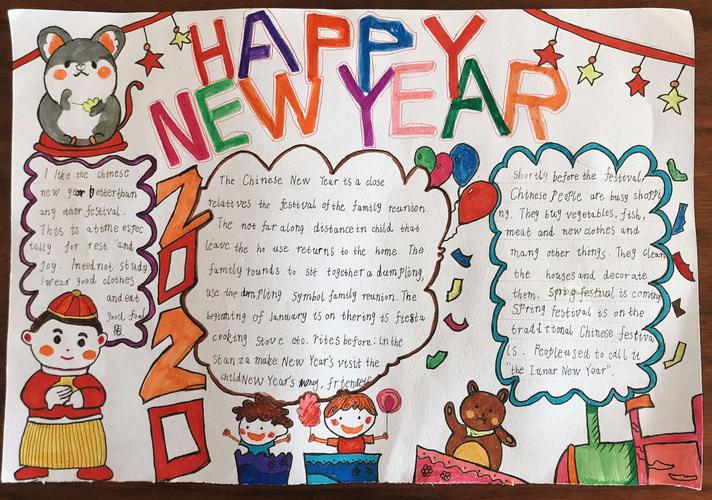 HAPPY
NEW YEAR
I like the chinese
new year better than
any other festival.
This is atime espec
ially for rest and
joy. Ineednot study.
Iwear good clothes
and eat
good food
2020
The Chinese New Year is a close
relatives the festival of the family reunion.
The not far along distance in child that
leave the ho use returns to the home. The
family rounds to sit together a dumpling,
use the dumpling symbol family reunion. The
beginning of January is on thering is fiesta
cooking stove etc. rites before; in the
stan za make New Year's visit the
child New Year's
shortly before the festival,
Chinese People are busy shoppi
ng. They buy vegetables, fish,
meat and new clothes and
many other things. They clean
the houses and decorate
them. Spring festival is coming
Spring Festival is on the
traditional Chinese festiva
ls. People used to call it
"the Lunar New Year".